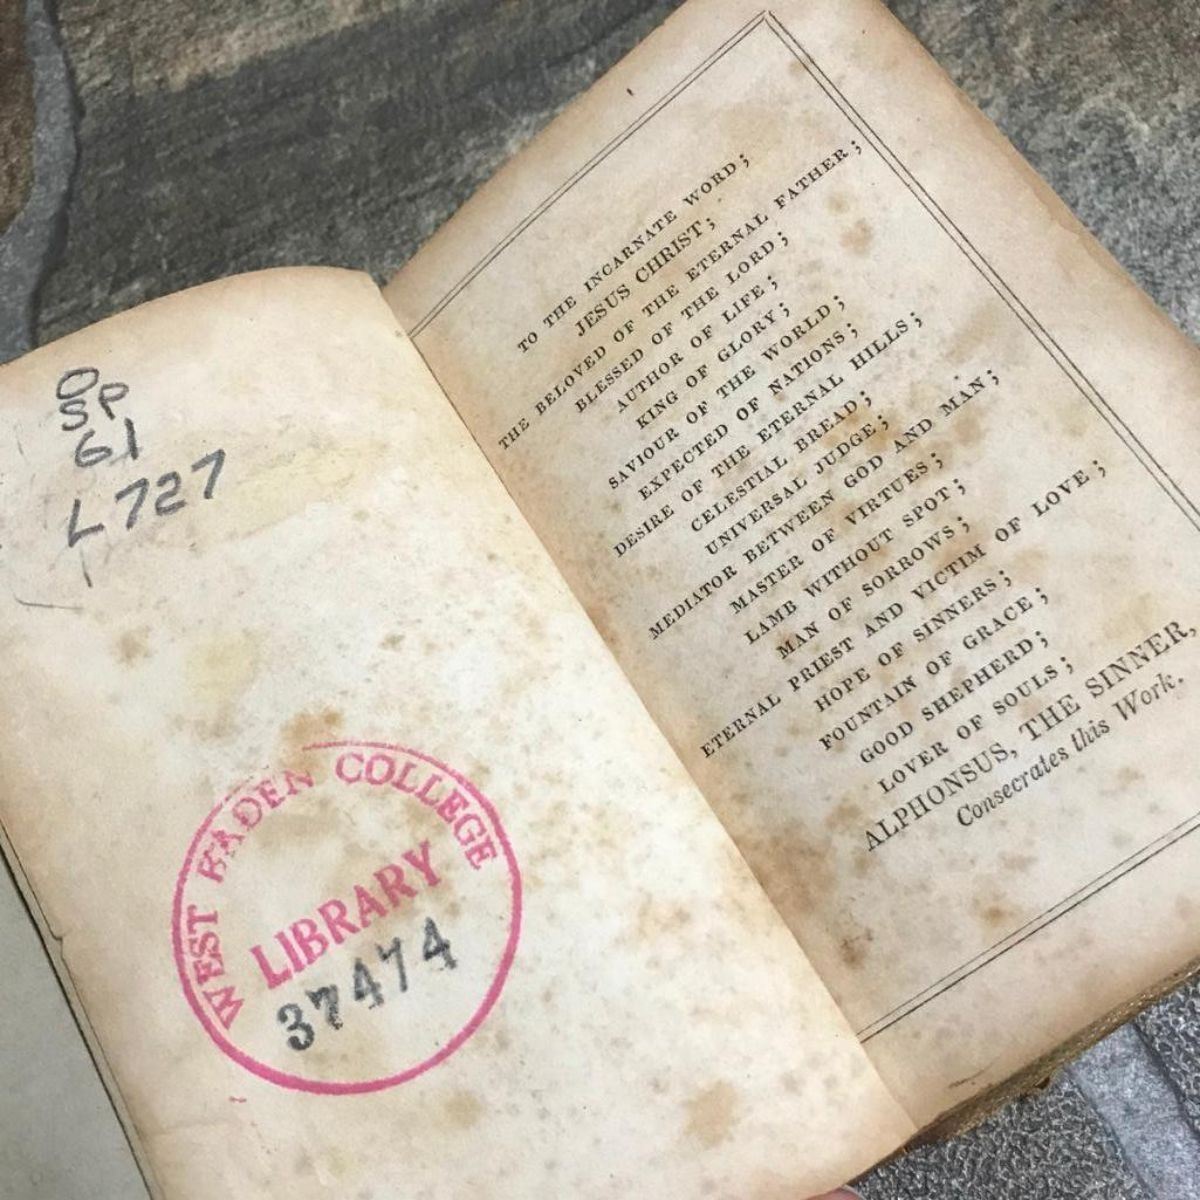 O
SP
61
L727
WEST BADEN COLLEGE
LIBRARY
37474
TO THE INCARNATE WORD;
JESUS CHRIST;
THE BELOVED OF THE ETERNAL FATHER;
BLESSED OF THE LORD;
AUTHOR OF LIFE;
KING OF GLORY;
SAVIOUR OF THE WORLD;
EXPECTED OF NATIONS;
DESIRE OF THE ETERNAL HILLS;
CELESTIAL BREAD;
UNIVERSAL JUDGE;
MEDIATOR BETWEEN GOD AND MAN;
MASTER OF VIRTUES;
LAMB WITHOUT SPOT;
MAN OF SORROWS;
ETERNAL PRIEST AND VICTIM OF LOVE;
HOPE OF SINNERS;
FOUNTAIN OF GRACE;
GOOD SHEPHERD;
LOVER OF SOULS;
ALPHONSUS, THE SINNER,
Consecrates this Work.